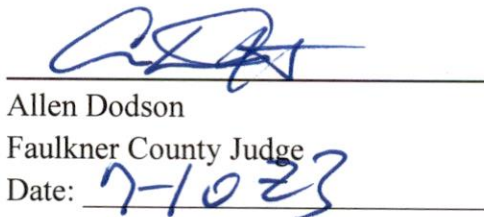 Allen Dodson
Faulkner County Judge
Date: 7-10 23